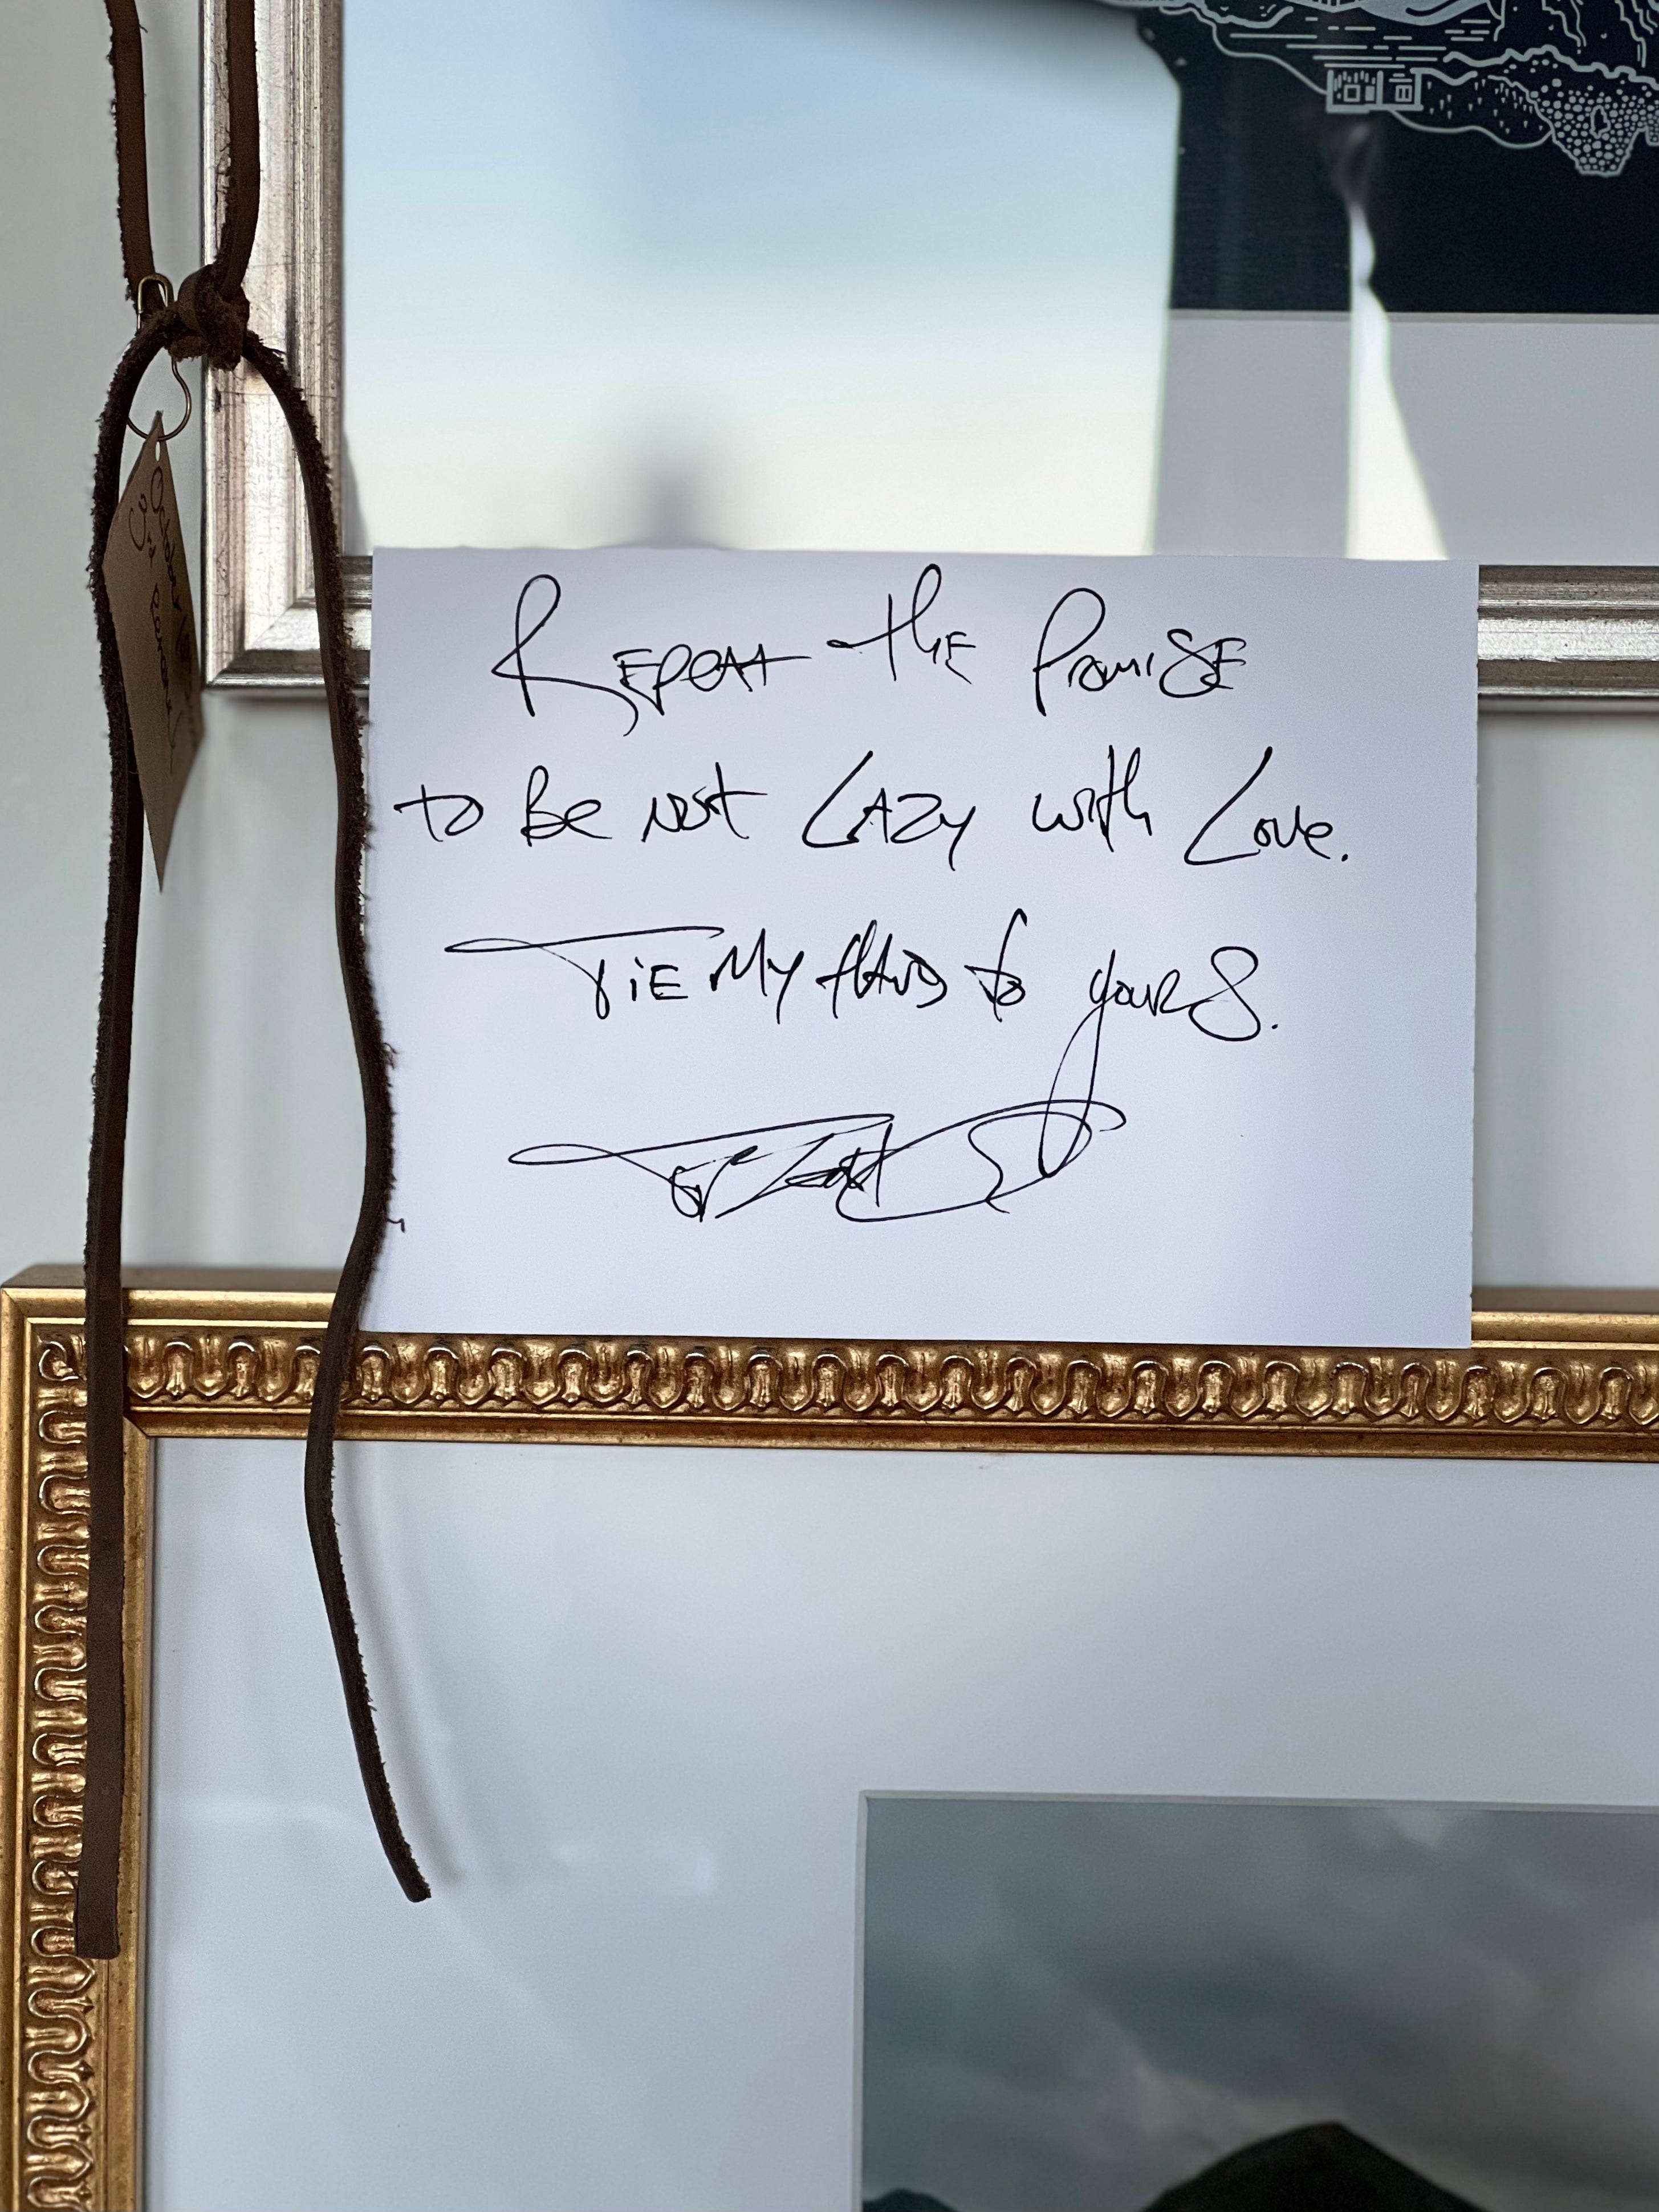 REPEAT the PROMISE
to Be NOT LAZY with Love.
TiE MY HANDS to yours.